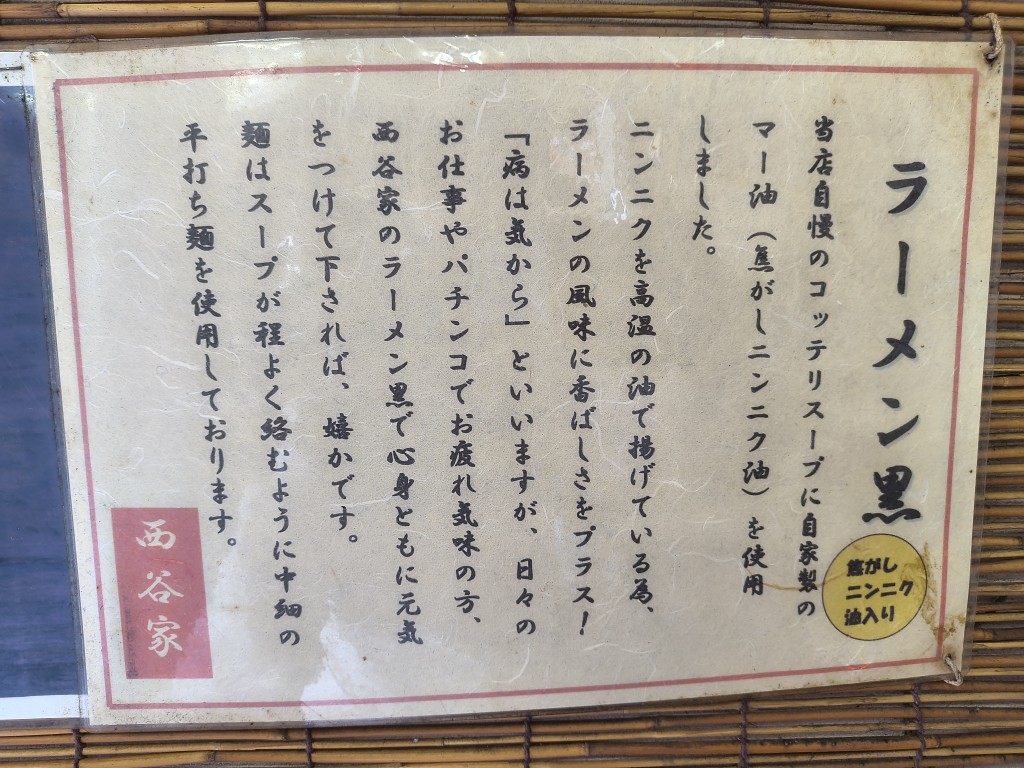 ラーメン黒
焦がし
ニンニク
油入り
当店自慢のコッテリスープに自家製の
マー油（焦がしニンニク油）を使用
しました。
ニンニクを高温の油で揚げている為、
ラーメンの風味に香ばしさをプラス！
「病は気から」といいますが、日々の
お仕事やパチンコでお疲れ気味の方、
西谷家のラーメン黒で心身ともに元気
をつけて下されば、嬉かです。
麺はスープが程よく絡むように中細の
平打ち麺を使用しております。
西谷家